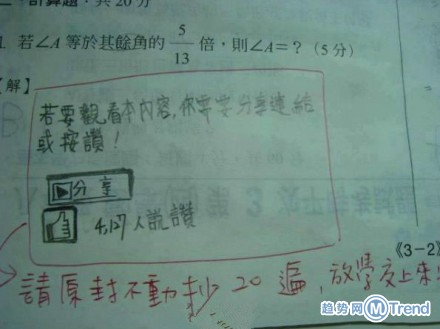 計算題：共20分
1. 若∠A 等於其餘角的 5/13 倍，則∠A=？（5 分）
【解】
若要觀看本內容,你要要分享連結
或按讚！
分享
4,127 人說讚
《3-2》
請原封不動抄 20 遍,放學交上來
趋势网 Trend